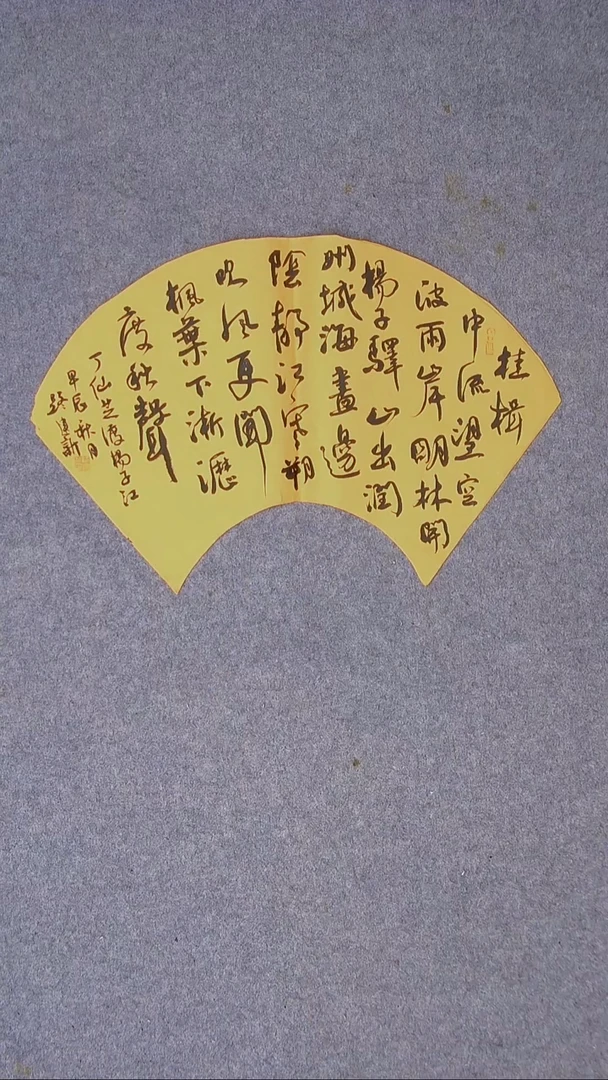 桂楫
中流望空
波兩岸明林開
楊子驛山出潤
州城海盡邊
陰靜江寒朔
吹风更聞
楓葉下淅瀝
度秋聲
丁仙芝渡揚子江
甲辰秋月